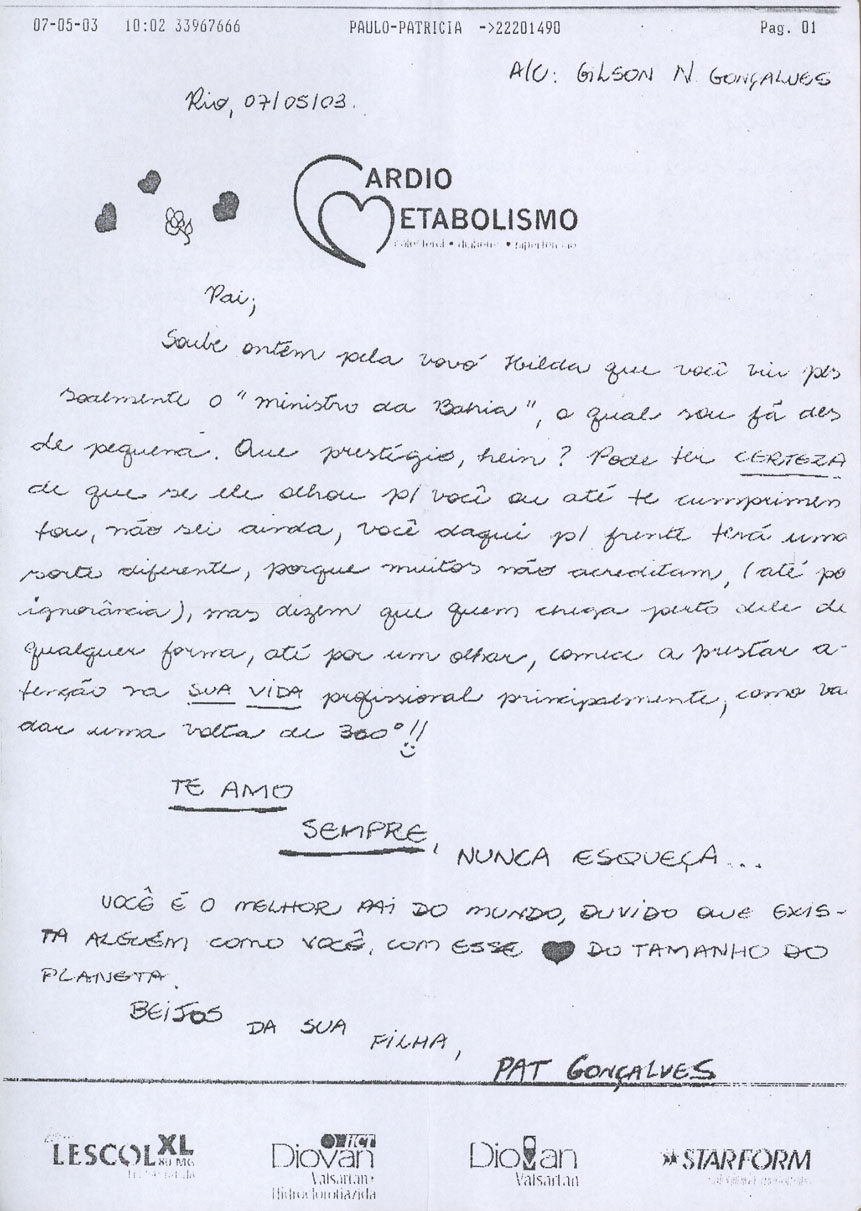 07-05-03 10:02 33967666 PAULO-PATRICIA ->22201490 Pag. 01
A/C: GILSON N GONÇALVES
Rio, 07/05/03.
CARDIO
METABOLISMO
colesterol • diabetes • hipertensão
Pai,
Soube ontem pela vovó Hilda que você viu pes
soalmente o "ministro da Bahia", o qual sou fã des
de pequena. Que prestígio, hein? Pode ter CERTEZA
de que se ele olhou p/ você ou até te cumprimen
tou, não sei ainda, você daqui p/ frente terá uma
sorte diferente, porque muitos não acreditam, (até po
ignorância), mas dizem que quem chega perto dele de
qualquer forma, até por um olhar, comece a prestar a-
tenção na SUA VIDA profissional principalmente, como va
dar uma volta de 360°!!
TE AMO
SEMPRE, NUNCA ESQUEÇA...
VOCÊ É O MELHOR PAI DO MUNDO, DUVIDO QUE EXIS-
TA ALGUÉM COMO VOCÊ, COM ESSE DO TAMANHO DO
PLANETA.
BEIJOS DA SUA FILHA,
PAT GONÇALVES
LESCOL XL 80 MG
Diovan HCT
Valsartan+
Hidroclorotiazida
Diovan
Valsartan
STARFORM